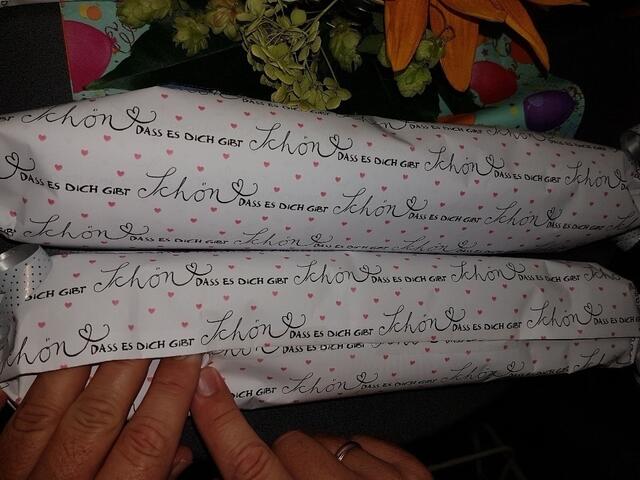 Schön DASS ES DICH GIBT Schön DASS ES DICH GIBT Schön DASS ES DICH GIBT Schön
DASS ES DICH GIBT Schön DASS ES DICH GIBT Schön DASS ES DICH GIBT Schön DASS ES DICH GIBT
Schön DASS ES DICH GIBT Schön DASS ES DICH GIBT Schön
DICH GIBT Schön DASS ES DICH GIBT Schön DASS ES DICH GIBT Schön DASS ES DICH GIBT
Schön DASS ES DICH GIBT Schön DASS ES DICH GIBT Schön DASS ES DICH GIBT Schön DASS ES DICH GIBT
DICH GIBT Schön DASS ES DICH GIBT Schön DASS ES DICH GIBT